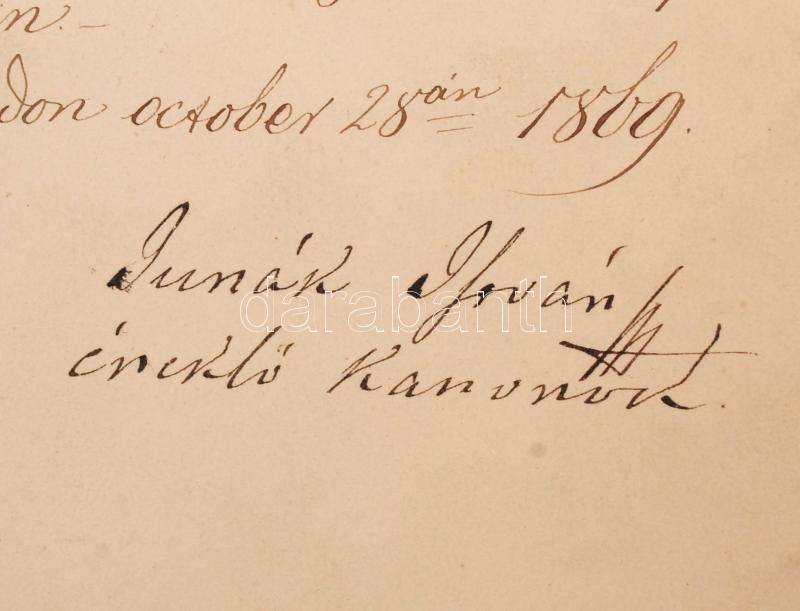 in. –
don october 28án 1869.
Junák István
darabanth
éneklő kanonok.